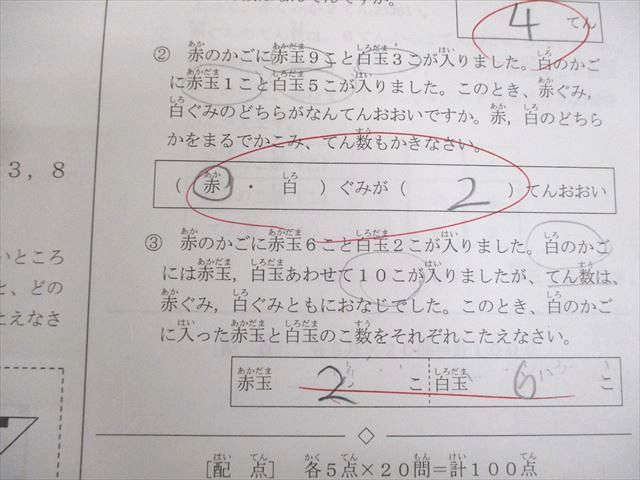 4 てん
② 赤のかごに赤玉9こと白玉3こが入りました。白のかご
に赤玉1こと白玉5こが入りました。このとき、赤ぐみ,
白ぐみのどちらがなんてんおおいですか。赤,白のどちら
かをまるでかこみ、てん数もかきなさい。
( 赤 ・ 白 )ぐみが( 2 )てんおおい
3,8
③ 赤のかごに赤玉6こと白玉2こが入りました。白のかご
には赤玉,白玉あわせて10こが入りましたが、てん数は、
いところ
赤ぐみ,白ぐみともにおなじでした。このとき、白のかご
と、どの
に入った赤玉と白玉のこ数をそれぞれこたえなさい。
たえなさ
赤玉 2 こ 白玉 6 こ
[配 点] 各5点×20問=計100点